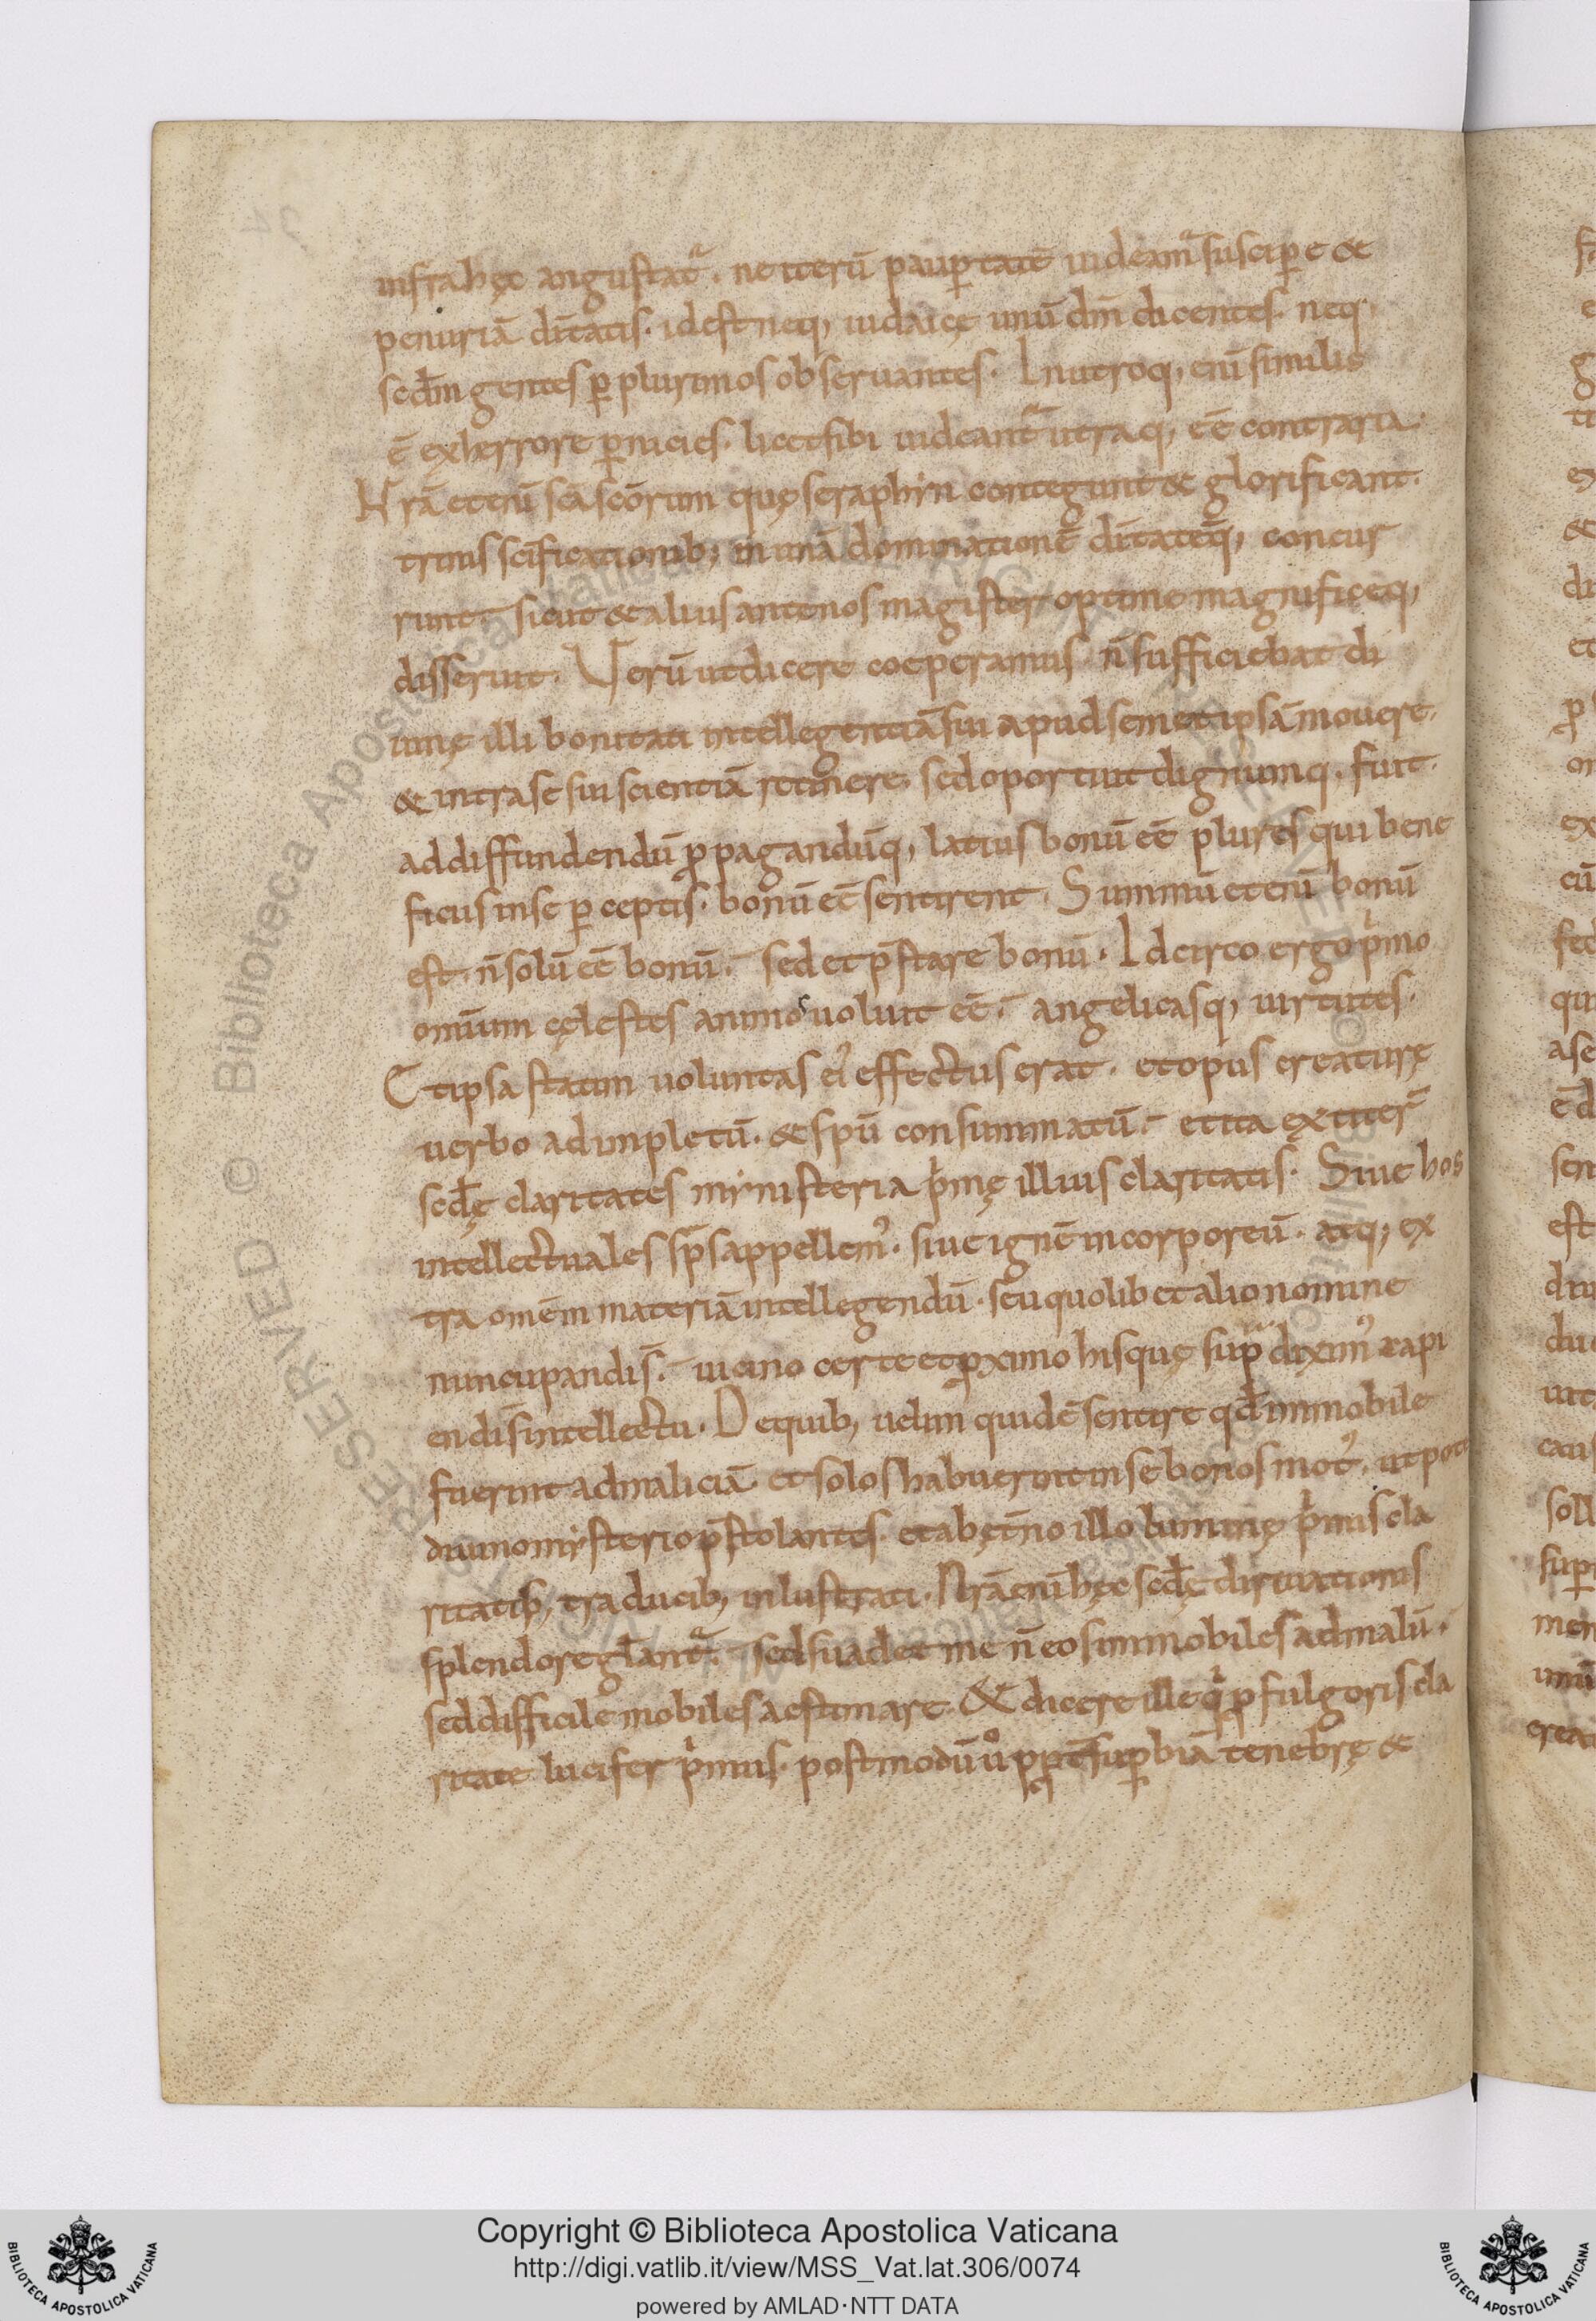 infra hęc angustat᷑. ne iterū paup̱tatē uideam᷑ suscip̱e &
penuriā dīṫatis. id est neq; iudaicę unū dm̄ dicentes. neq;
scdm̄ gentes p̱ plurimos obseruantes. In utroq; eni͞ similis
ē ex herrore p̱nicies. licet sibi uideant᷑ utraq; eē contraria.
Nrā eteni͞ scā scōrum quę seraphyn contegunt & glorificant.
trinis scīficationib; in unā dominationē dīṫateq; concur
runt. sicut & alius ante nos magister optime magnificeq;
disseruit. Verū ut dicere coeperamus n̄ sufficiebat di
uinę illi bonitati intellegentiā sui apud semet ipsā mouere.
& intra se sui scientiā retinere. sed oportuit dignumq. fuit.
ad diffundendū ꝓpagandūq; latius bonū eē plures qui bene
ficus in se p̱ceptis. bonū eē sentirent. Summū eteni͞ bonū
est n̄ solū eē bonū. sed et p̄stare bonū. Idcirco ergo pͥmo
omīum cęlestes animos uoluit eē. angelicasq; uirtutes.
Et ipsa statim uoluntas ei᷒ effectus erat. et opus creaturę
uerbo adimpletū. & sp̄u consummatū. et ita extiter̄
scdę̄ claritates mynisteria pͥmę illius claritatis. Siue hos
intellectuales sp̄s appellem᷒. siue ignē incorporeū. atq; ex
tra omēm materiā intellegendū. seu quolibet alio nomine
nuncupandis̄. uicino certe et ꝓximo his quę sup᷑ dixim᷒ rapi
endis̄ intellectu. De quib; uelim quidē sentire qđ immobile
fuerint ad maliciā. et solos habuerint in se bonos mot᷒. utpote
diuino mysterio p̄stolantes. et ab ęt̄no illo luminę pͥmis cla
ritatib; traducib; inlustrati. Nrā eni͞ hęc scdę̄ diriuationis
splendore gl̄ant᷑. sed suadet me n̄ eos immobiles ad malū.
sed difficile mobiles aestimare. & dicere ille qͥ ꝓ fulgoris cla
ritate lucifer pͥmus. postmodū uͦ ꝓpt̄ sup̱biā tenebrę &
Copyright © Biblioteca Apostolica Vaticana
http://digi.vatlib.it/view/MSS_Vat.lat.306/0074
powered by AMLAD·NTT DATA